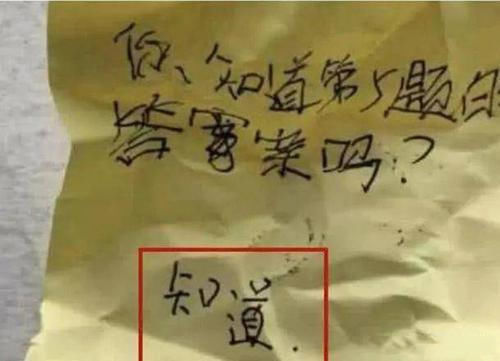 你、知道第5题的
答案案吗？
知道.